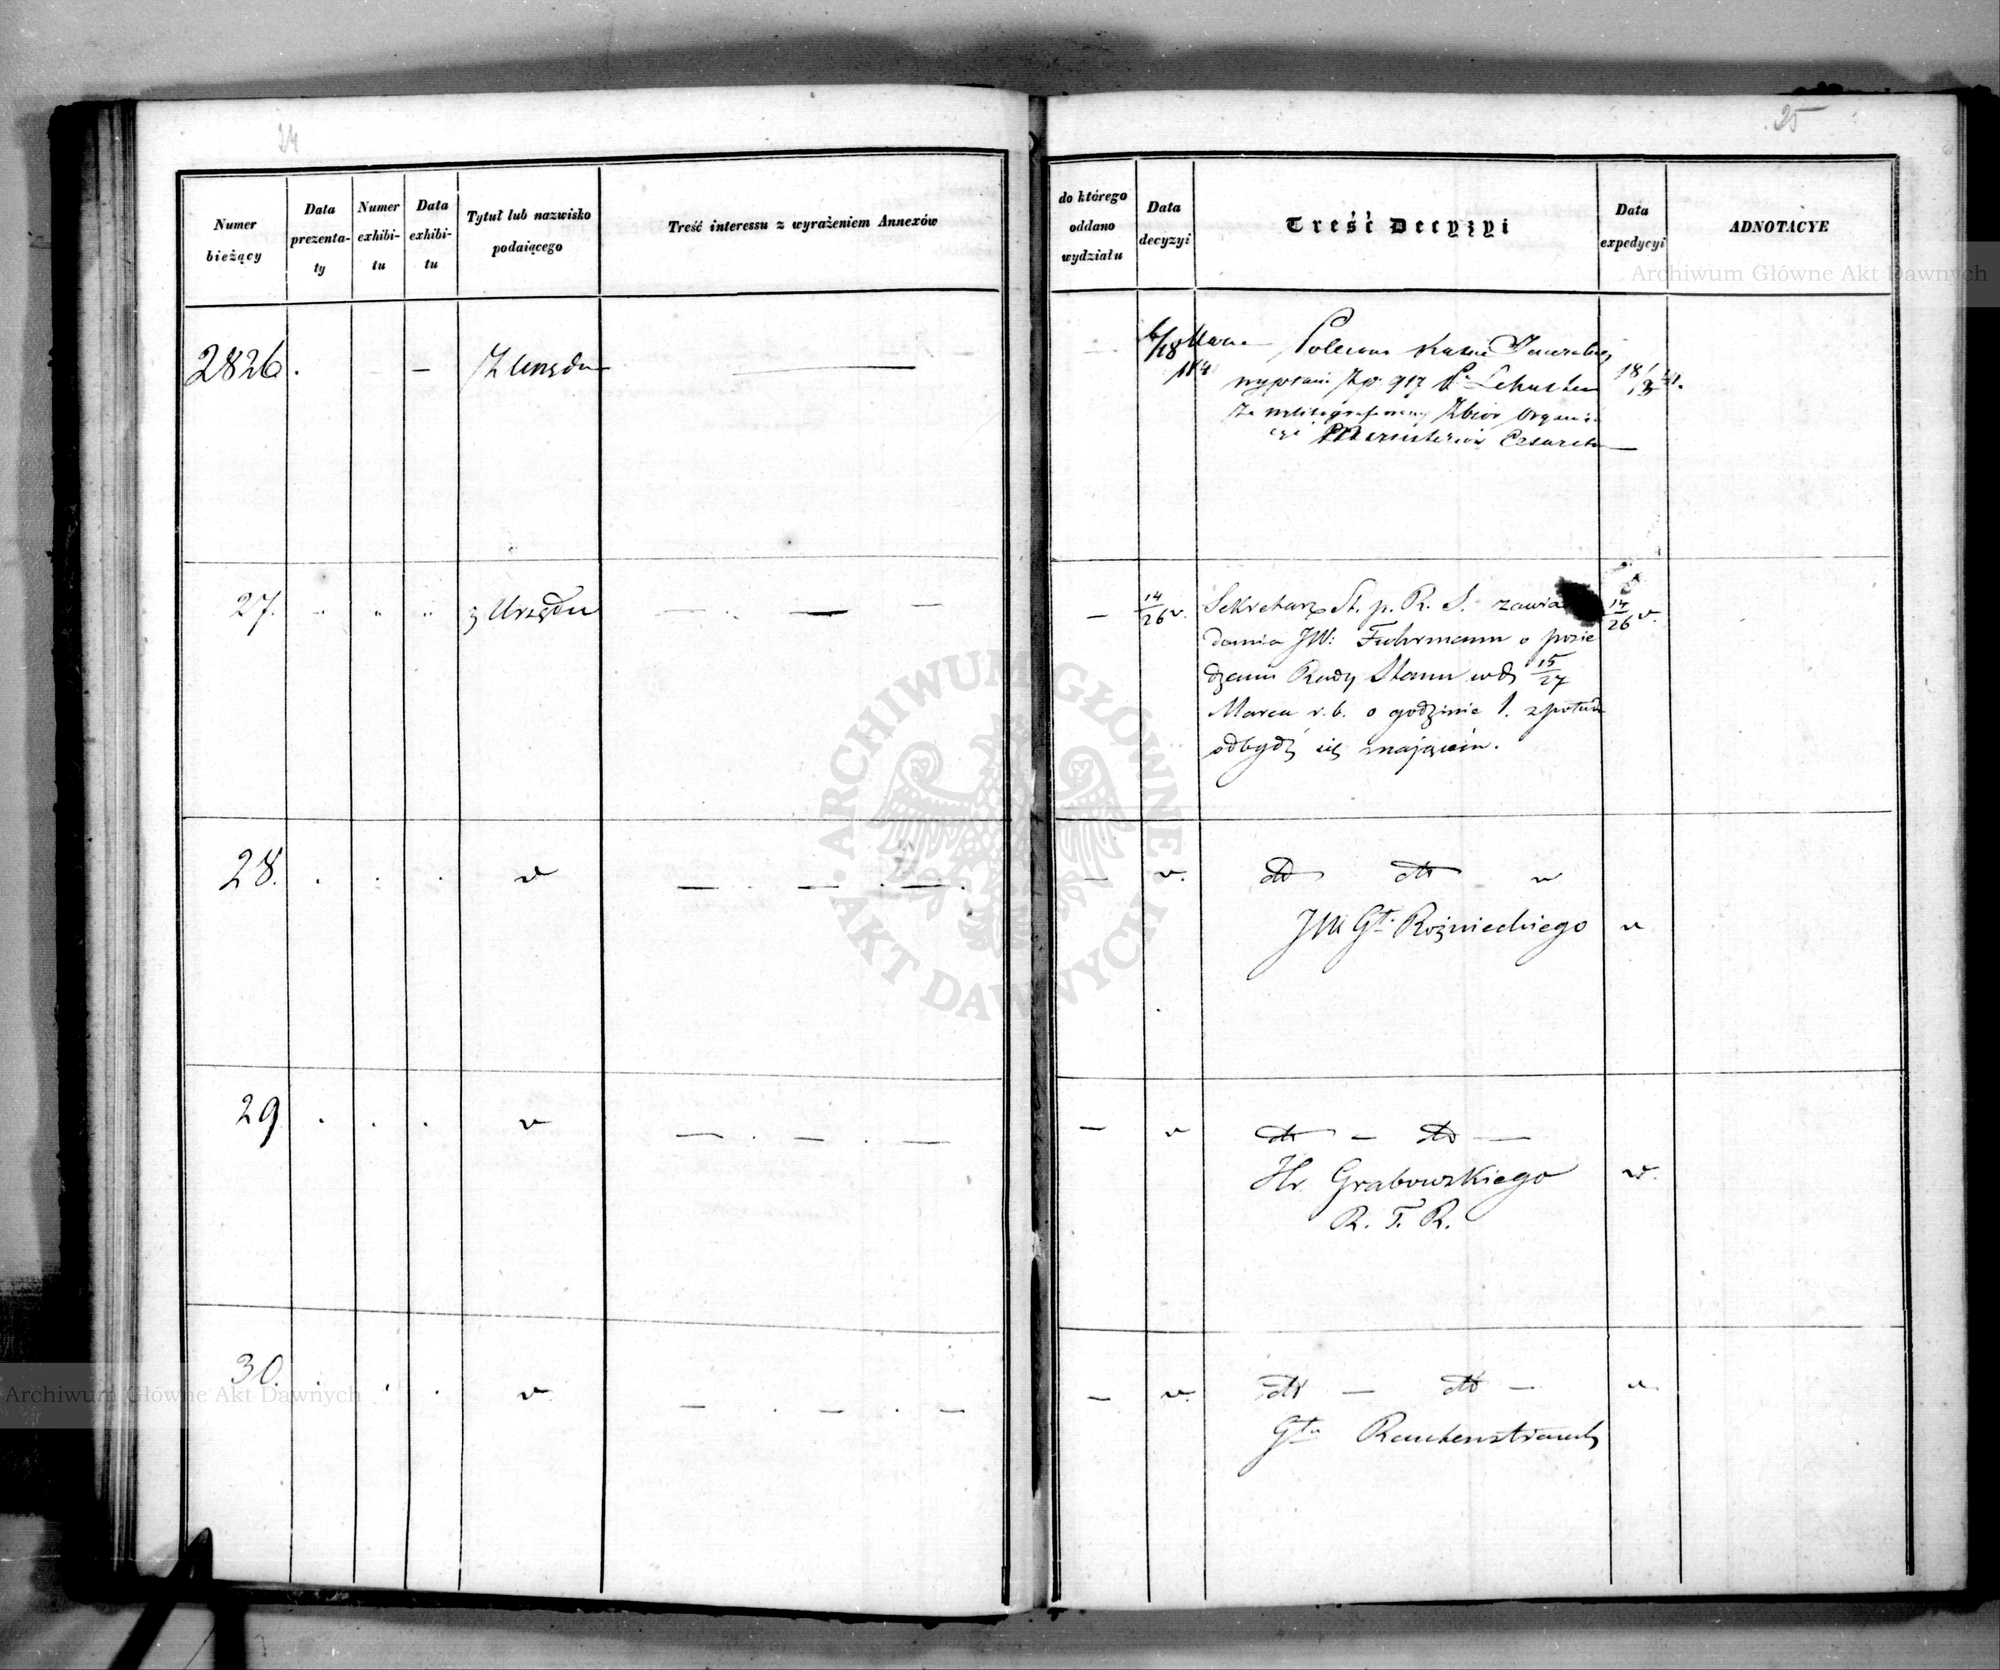 24
Numer bieżący
Data prezenta-ty
Numer exhibi-tu
Data exhibi-tu
Tytuł lub nazwisko podaiącego
Treść interessu z wyrażeniem Annexów
2826.
Z Urzędu
27.
z Urzędu
28.
29
30.
25
do którego oddano wydziału
Data decyzyi
Treść Decyzyi
Data expedycyi
ADNOTACYE
6/18 Marca
Polecono Kassie Jeneralney
wypłacić Złp. 917
za Zbiór Organi-
cyi
14/26 v.
Sekretarz St. p. R. S. zawia
damia JW: Fuhrmann o posie
dzeniu Rady Stanu w d. 15/27
Marca r. b. o godzinie 1. z połud
odbydź się mającém.
14/26 v.
v.
dtto dtto v
JW Gła Rożnieckiego
v
v
dtto — dtto —
Hr Grabowskiego
v.
R. T. R.
v.
dtto — dtto —
v.
Gła Rautenstrauch
ARCHIWUM GŁÓWNE AKT DAWNYCH
Archiwum Główne Akt Dawnych
Archiwum Główne Akt Dawnych